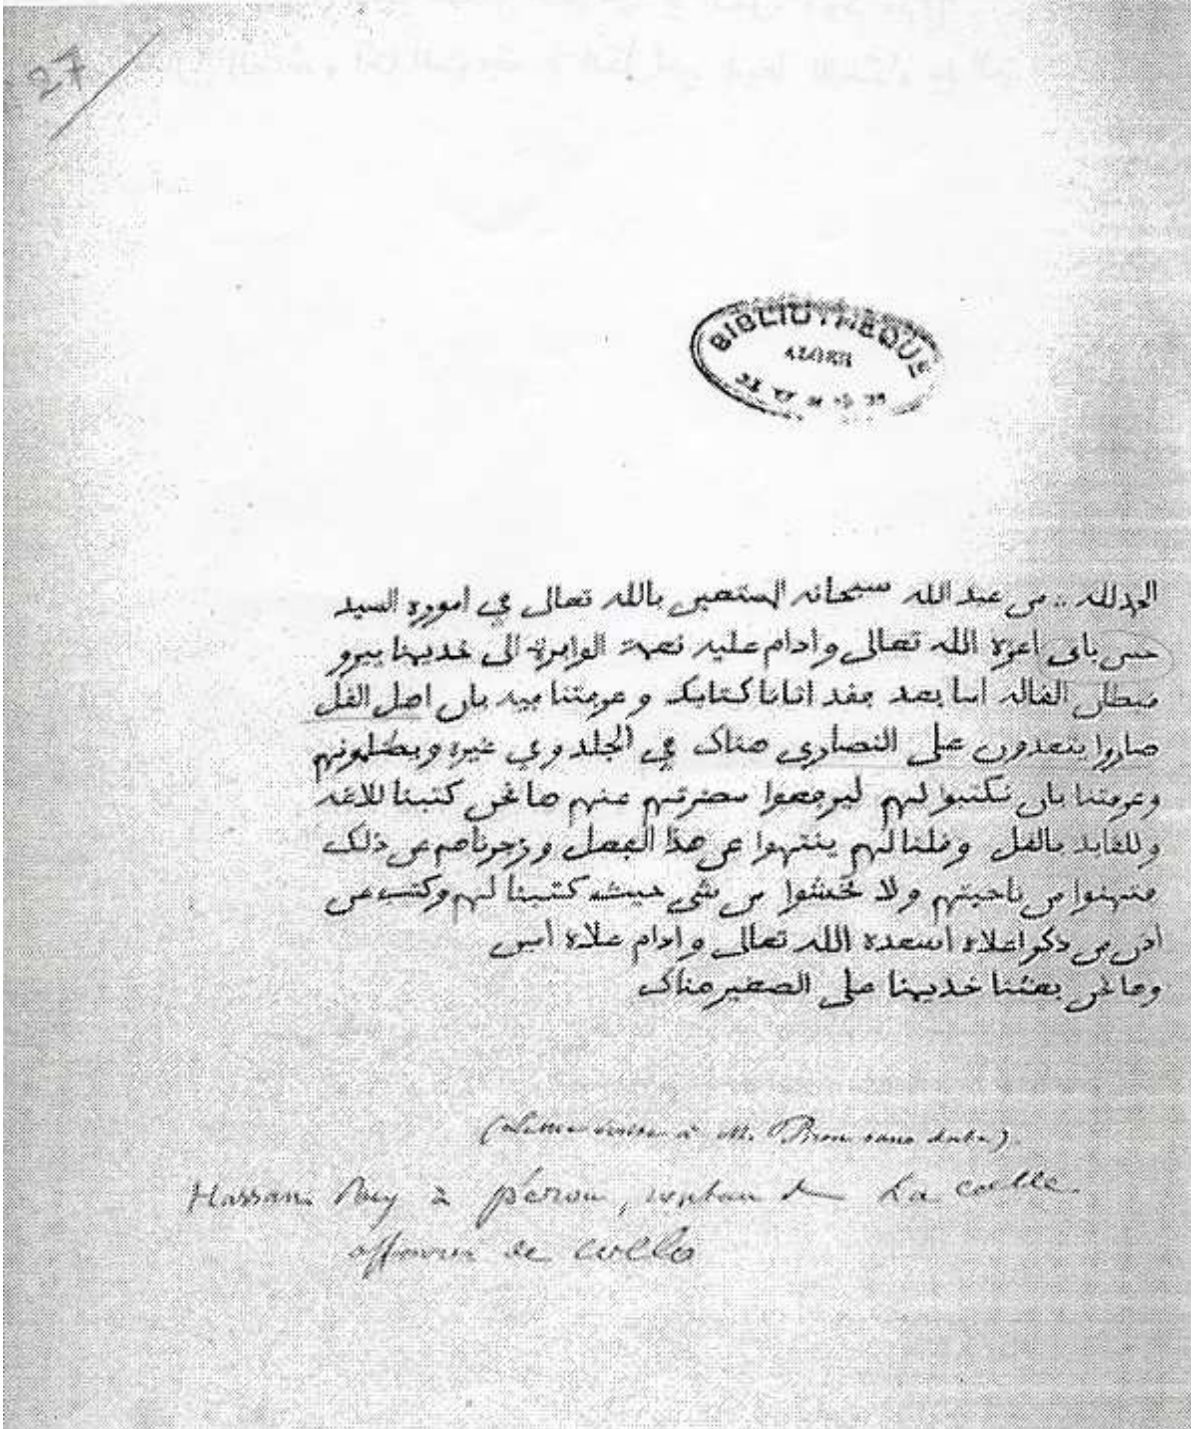 27
BIBLIOTHEQUE
ALGER
الحمد لله .. من عبد الله سبحانه المستعين بالله تعالى في اموره السيد
حسن باي اعزه الله تعالى وادام عليه نعمته الوافرة الى خديمنا بيرو
قنطل القالة اما بعد فقد اتانا كتابك وعرفتنا فيه بان اهل القل
صاروا يتعدون على النصارى هناك في الجلد وفي غيره ويظلمونهم
وعرفتنا بان نكتبوا لهم ليرفعوا مضرتهم عنهم ها نحن كتبنا للاغه
وللقايد بالقل وقلنا لهم ينتهوا عن هذا الفعل وزجرناهم عن ذلك
فتهنوا من ناحيتهم ولا تخشوا من شي حيث كتبنا لهم وكتب عن
اذن من ذكر اعلاه اسعده الله تعالى وادام علاه أمين
وها نحن بعثنا خديمنا علي الصغير هناك
(Lettre à M. sans date).
Hassan Bey à peron, de La calle
de collo